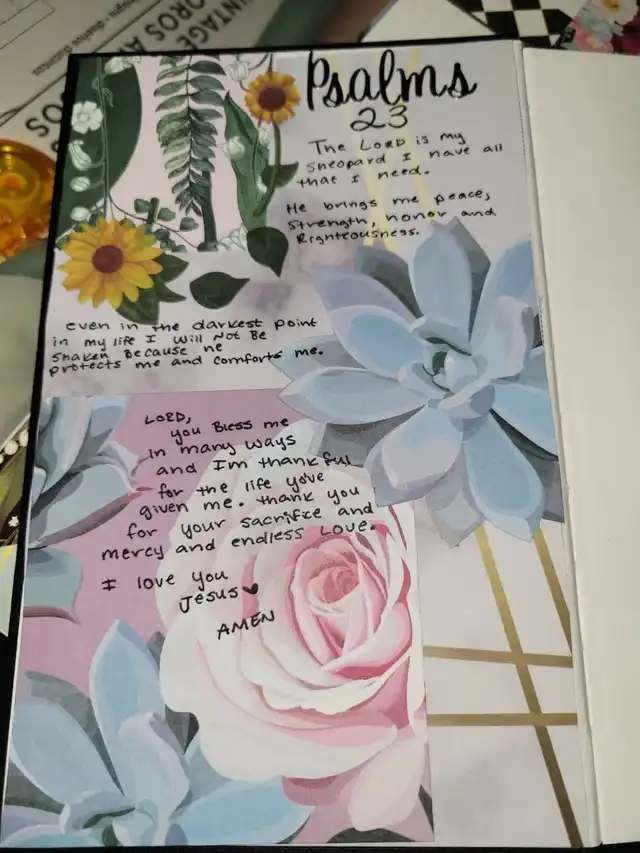 VINTAGE
Psalms
23
The LORD is my
Sheopard I have all
that I need.
He brings me peace,
Strength, honor and
Righteousness.
even in the darkest point
in my life I will Not Be
Shaken Because he
protects me and comforts me.
LORD,
you Bless me
in many ways
and Im thankful
for the life you've
given me. thank you
for your sacrifice and
mercy and endless Love.
I love you
Jesus
AMEN